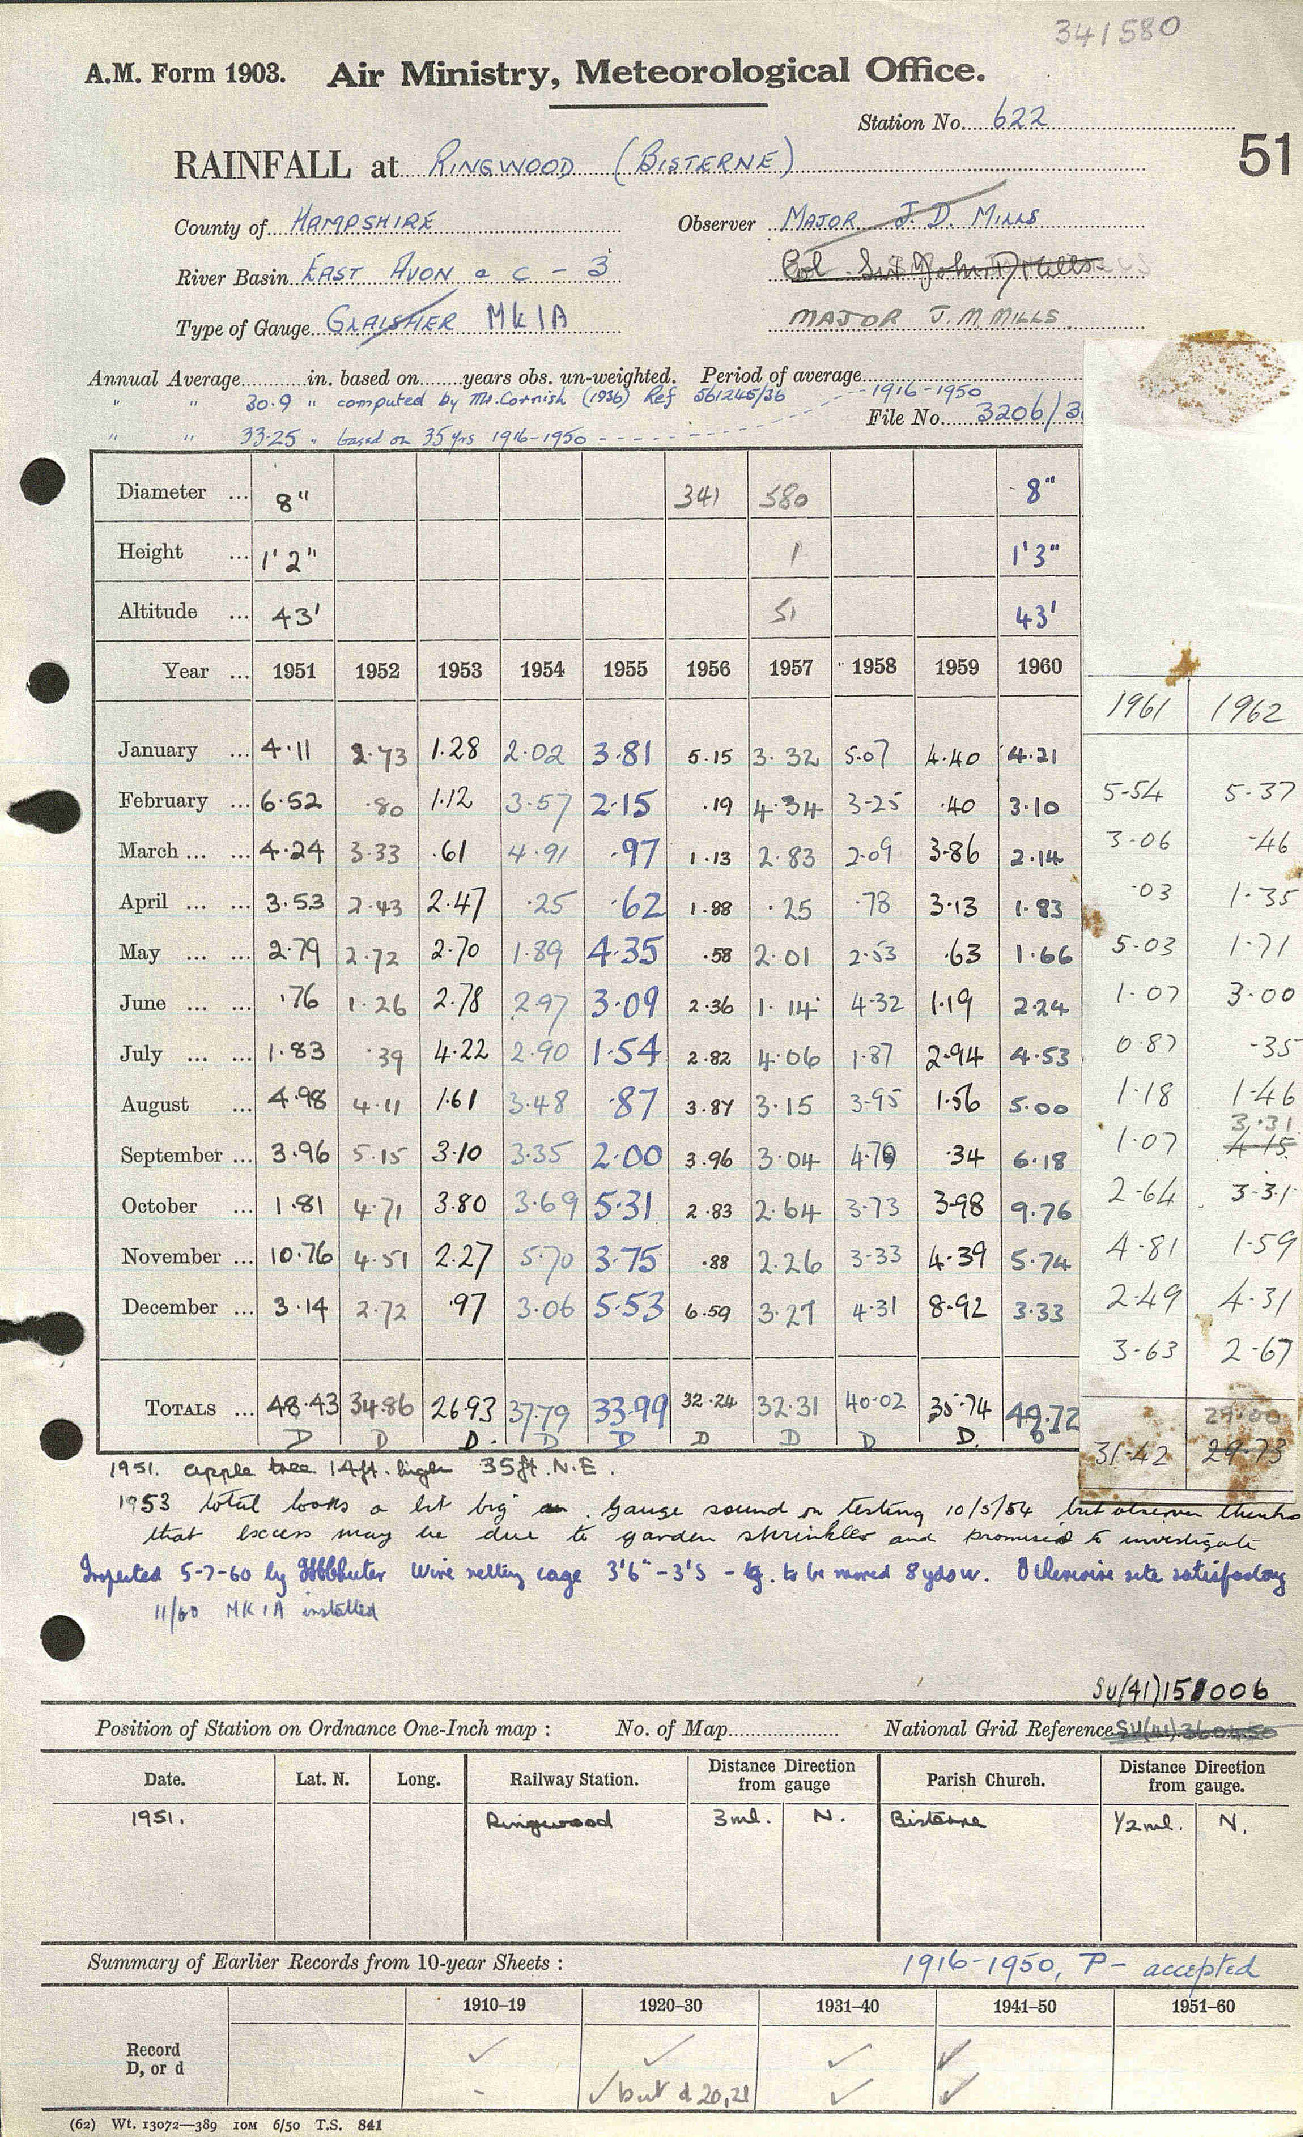 341580
A.M. Form 1903. Air Ministry, Meteorological Office.
Station No. 622
51
RAINFALL at RINGWOOD (BISTERNE)
County of HAMPSHIRE Observer MAJOR J. D. MILLS
River Basin EAST AVON a c - 3 Col. Sir John Mills
Type of Gauge GLAISHER MK1A MAJOR J. M. MILLS
Annual Average in. based on years obs. un-weighted. Period of average 1916-1950
" " 30.9 " computed by Mr. Cornish (1936) Ref 561245/36
File No. 3206/3
" " 33.25 " based on 35 yrs 1916-1950
Diameter ... 8" 341 580 8"
Height ... 1'2" 1 1'3"
Altitude ... 43' 51 43'
Year ... 1951 1952 1953 1954 1955 1956 1957 1958 1959 1960 1961 1962
January ... 4.11 2.73 1.28 2.02 3.81 5.15 3.32 5.07 4.40 4.21 5.54 5.37
February ... 6.52 .80 1.12 3.57 2.15 .19 4.34 3.25 .40 3.10 3.06 .46
March ... ... 4.24 3.33 .61 4.91 .97 1.13 2.83 2.09 3.86 2.14 .03 1.35
April ... ... 3.53 2.43 2.47 .25 .62 1.88 .25 .78 3.13 1.83 5.03 1.71
May ... ... 2.79 2.72 2.70 1.89 4.35 .58 2.01 2.53 .63 1.66 1.07 3.00
June ... ... .76 1.26 2.78 2.97 3.09 2.36 1.14 4.32 1.19 2.24 0.87 .35
July ... ... 1.83 .39 4.22 2.90 1.54 2.82 4.06 1.87 2.94 4.53 1.18 1.46
August ... 4.98 4.11 1.61 3.48 .87 3.87 3.15 3.95 1.56 5.00 1.07 3.31 4.15
September ... 3.96 5.15 3.10 3.35 2.00 3.96 3.04 4.79 .34 6.18 2.64 3.31
October ... 1.81 4.71 3.80 3.69 5.31 2.83 2.64 3.73 3.98 9.76 4.81 1.59
November ... 10.76 4.51 2.27 5.70 3.75 .88 2.26 3.33 4.39 5.74 2.49 4.31
December ... 3.14 2.72 .97 3.06 5.53 6.59 3.27 4.31 8.92 3.33 3.63 2.67
TOTALS ... 48.43 34.86 26.93 37.79 33.99 32.24 32.31 40.02 35.74 49.72 31.42 29.73
D D D. D D D D D D. D
1951. apple tree 14ft. high 35ft. N.E.
1953 total looks a bit big. Gauge sound on testing 10/5/54 but observer thinks
that excess may be due to garden sprinkler and promised to investigate
Inspected 5-7-60 by Wire netting cage 3'6" - 3'3 - to be moved 8yds w. Otherwise site satisfactory
11/60 MK1A installed
SU(41)151006
Position of Station on Ordnance One-Inch map : No. of Map National Grid Reference
Date. Lat. N. Long. Railway Station. Distance Direction from gauge Parish Church. Distance Direction from gauge.
1951. Ringwood 3ml. N. Bisterne 1/2ml. N.
Summary of Earlier Records from 10-year Sheets : 1916-1950, P - accepted
1910-19 1920-30 1931-40 1941-50 1951-60
Record ✓ ✓ ✓ ✓
D, or d - ✓ but d 20,21 ✓ ✓
(62) Wt. 13072—389 10M 6/50 T.S. 841